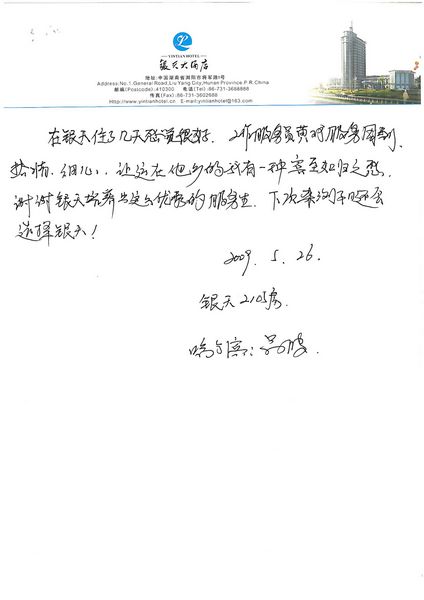 YINTIAN HOTEL
银天大酒店
地址:中国湖南省浏阳市将军路1号
Address:No.1,General Road,Liu Yang City,Hunan Province P.R.China
邮编(Postcode):410300 电话(Tel)-86-731-3688888
传真(Fax):86-731-3602688
Http://www.yintianhotel.cn E-Mail:yintianhotel@163.com
在银天住了几天感觉很好. 工作服务员黄 服务周到.
热情、细心、让远在他乡的我有一种宾至如归之感.
谢谢银天培养出这么优秀的服务生. 下次来浏阳还会
选择银天!
2009. 5. 26.
银天2105房.
哈尔滨: 吴